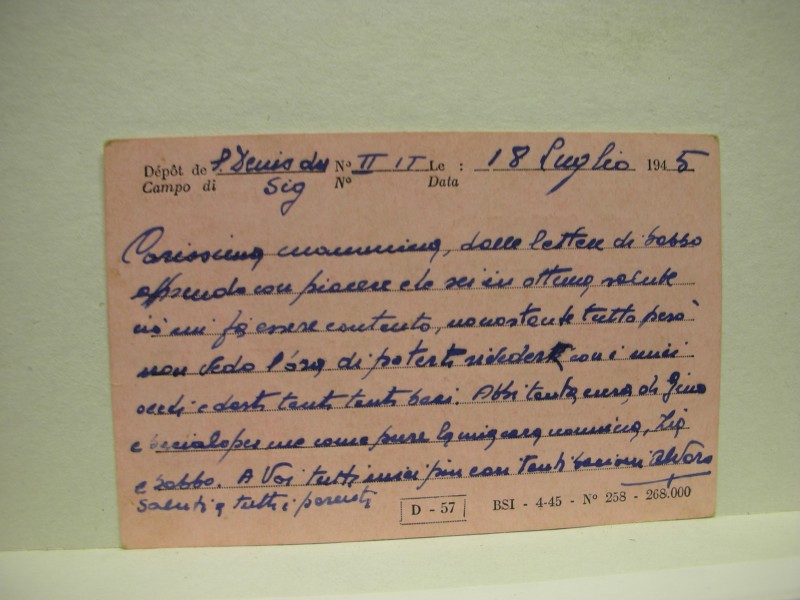 Dépôt de S. Denis du Nº II IT Le : 18 Luglio 1945
Campo di Sig Nº Data
Carissima mammina, dalle lettere di babbo
apprendo con piacere che sei in ottima salute
ciò mi fa essere contento, nonostante tutto però
non vedo l'ora di poterti rivedere con i miei
occhi e darti tanti tanti baci. Abbi tanta cura di Gino
e bacialo per me come pure la mia cara nonnina, Zia
e babbo. A Voi tutti i miei più cari Tanti bacioni Alvaro
Saluti a tutti i parenti
D - 57 BSI - 4-45 - Nº 258 - 268.000